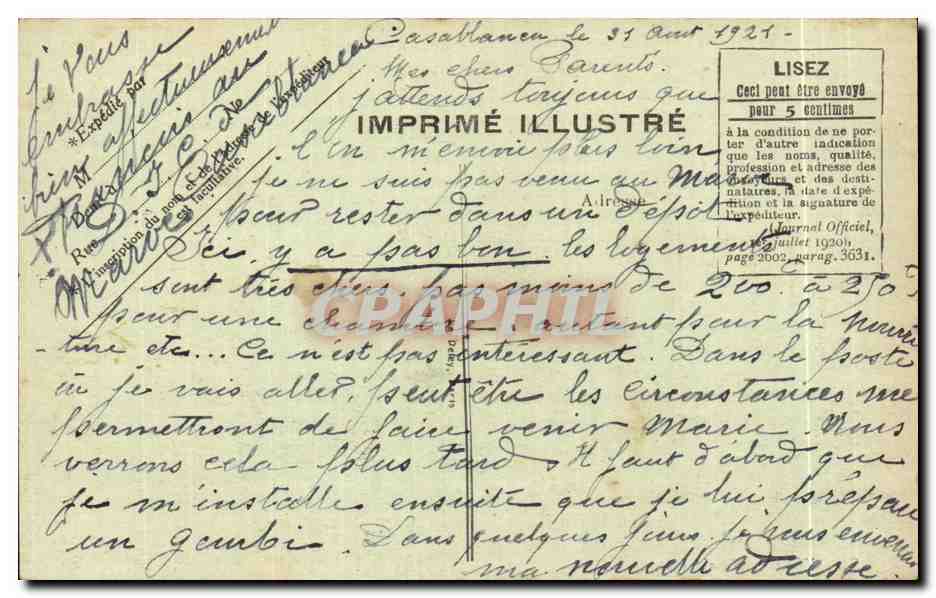 Casablanca le 31 Aout 1921 -
Mes chers Parents.
j'attends toujours que
l'on m'envoie plus loin
je ne suis pas venu au Maroc
pour rester dans un Dépôt
Ici, y a pas bon les logements
sont très chers pas moins de 200 à 250 f
pour une chambre, autant pour la nourri
-ture etc... Ce n'est pas intéressant. Dans le poste
où je vais aller, peut être les circonstances me
permettront de faire venir Marie. Nous
verrons cela plus tard. Il faut d'abord que
je m'installe ensuite que je lui prépare
un gourbi. Dans quelques jours je vous enverrai
ma nouvelle adresse.
je vous
embrasse
bien affectueusement
Maroc
IMPRIMÉ ILLUSTRÉ
Adresse
*Expédié par
M
Rue
N°
* L'inscription du nom et de l'adresse de l'expéditeur
est facultative.
LISEZ
Ceci peut être envoyé
pour 5 centimes
à la condition de ne por-
ter d'autre indication
que les noms, qualité,
profession et adresse des
envoyeurs et des desti-
nataires, la date d'expé-
dition et la signature de
l'expéditeur.
(Journal Officiel,
juillet 1920),
page 2602, parag. 3631.
CPAPHIL